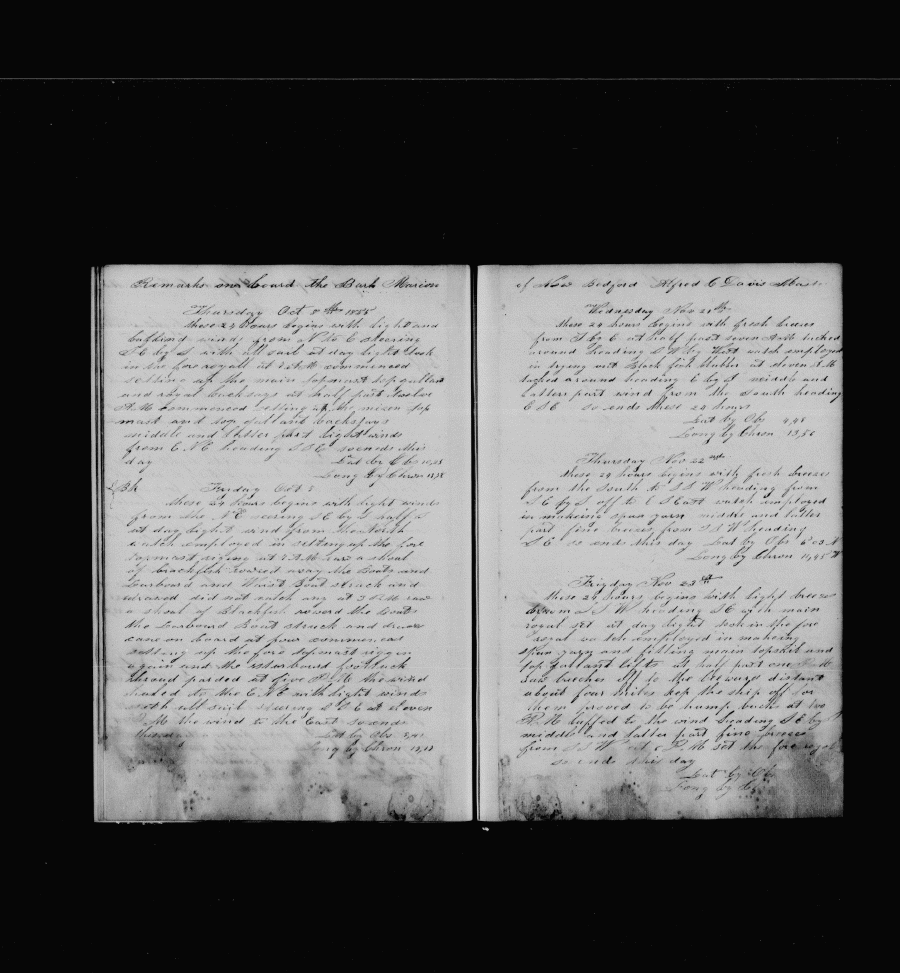 Remarks on board the Bark Marion
Thursday Oct 1855
these 24 hours begins with light and
baffling winds from N to E steering
S E by S with all sail at day light took
in the fore royall at A M commenced
setting up the main topmast topgallant
and royal backstays at half past twelve
A M commenced setting up the mizen top
mast and top gallant backstays
middle and latter part light winds
from E N E heading S S E so ends this
day Lat by Obs
Long by Chron
Friday Oct
these 24 hours begins with light winds
from the N E steering S E by S half S
at day light wind from the North
watch employed in setting up the fore
topmast riging at A M saw a shoal
of blackfish lowered away the Boats and
Larboard and Waist Boat struck and
drawed did not catch any at 3 P M saw
a shoal of Blackfish lowerd the Boats
the Larboard Boat struck and
came on board at four commences
setting up the fore topmast riggin
again and the starboard
parded at five P M the wind
hauled to the E N E with light winds
with all sail steering S S E at eleven
P M the wind to the East so ends
this day Lat by Obs
Long by Chron
of New Bedford Alfred C Davis Mast
Wednesday Nov 21st
these 24 hours begins with fresh breezes
from S by E at half past seven A M tacked
around heading S W by West watch employed
in trying out Black fish blubber at eleven A M
tacked around heading E by S middle and
latter part wind from the South heading
E S E so ends these 24 hours
Lat by Obs 4,48
Long by Chron 13,50
Thursday Nov 22nd
these 24 hours begins with fresh breezes
from the South to S S W heading from
S E by S off to E S East watch employed
in makeing spun yarn middle and latter
part fine breezes from S S W heading
S E so ends this day Lat by Obs
Long by Chron 11,45 W
Frigday Nov 23
these 24 hours begins with light breezes
from S S W heading S E with main
royal set at day light took in the fore
royal watch employed in makeing
spun yarn and fitting main topsail and
top gallant lifts at half past one P M
saw breches off to the leeward distant
about four Miles kep the ship off for
them proved to be hump backs at two
P M luffed to the wind heading S E by
middle and latter part fine breezes
from S S W at P M set the fore royal
so ends this day
Lat by Ob
Long by